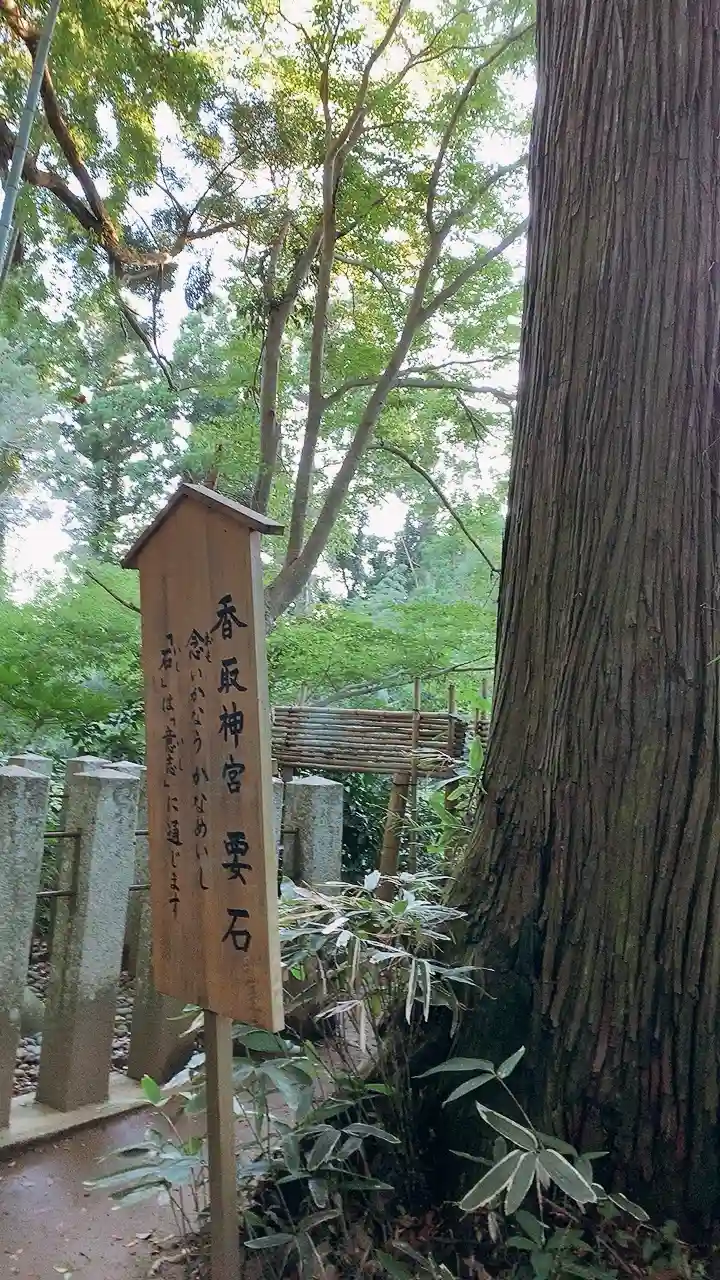 香取神宮 要石
念いかなう かなめいし
おも
「石」は「意志」に通じます
いし
いし